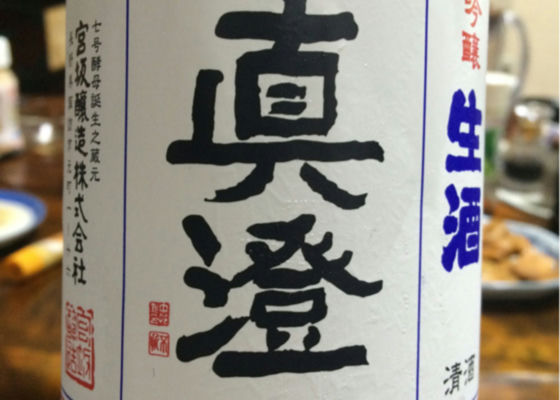 吟醸
生酒
清酒
真澄
七号酵母誕生之蔵元
宮坂醸造株式会社